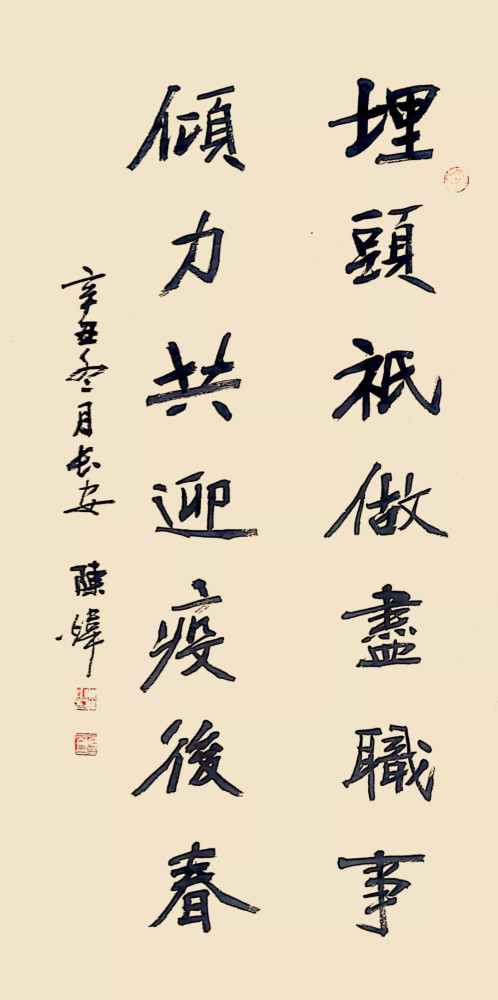 埋頭祇做盡職事
傾力共迎疫後春
辛丑冬月长安 陳煒